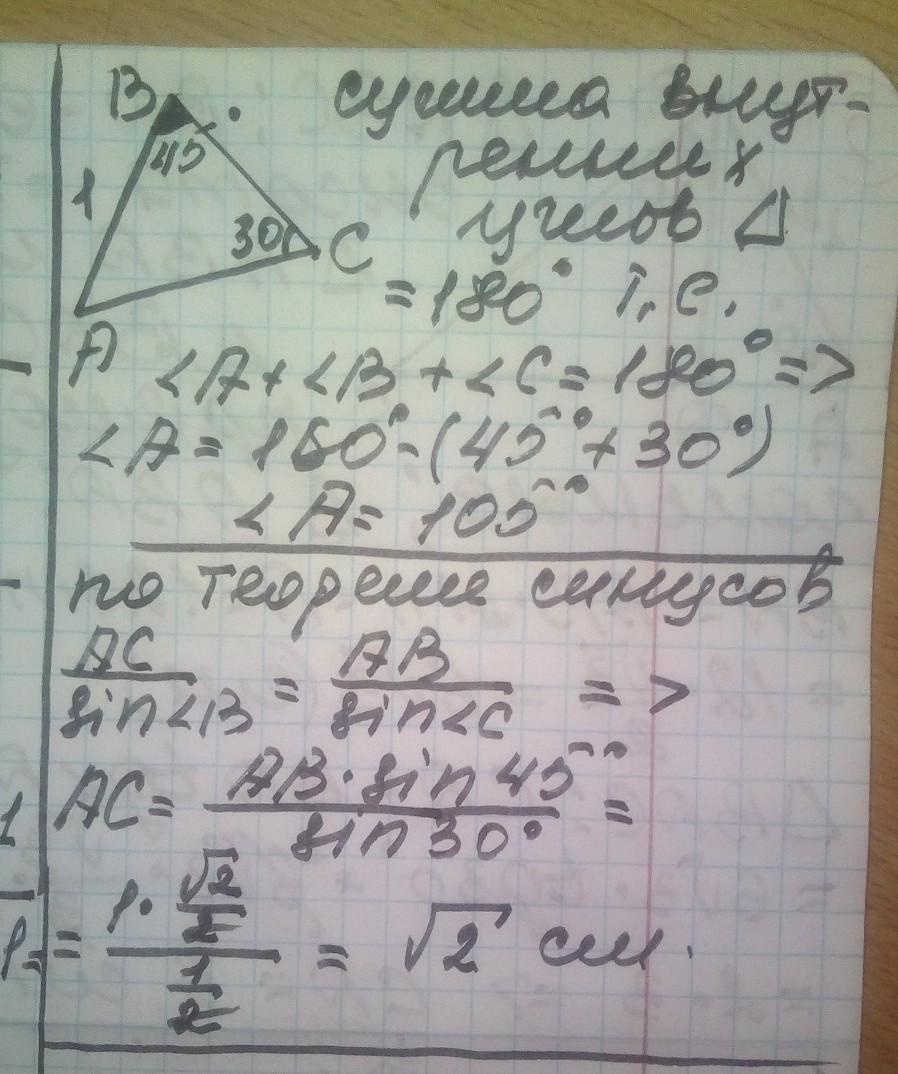 B
45
1
30
C
A
сумма внут-
ренних
углов Δ
=180° т.е.
∠A+∠B+∠C=180° =>
∠A=180°-(45°+30°)
∠A=105°
по теореме синусов
AC/sin∠B = AB/sin∠C =>
AC= AB·sin45°/sin30° =
= 1·√2/2 / 1/2 = √2 см.